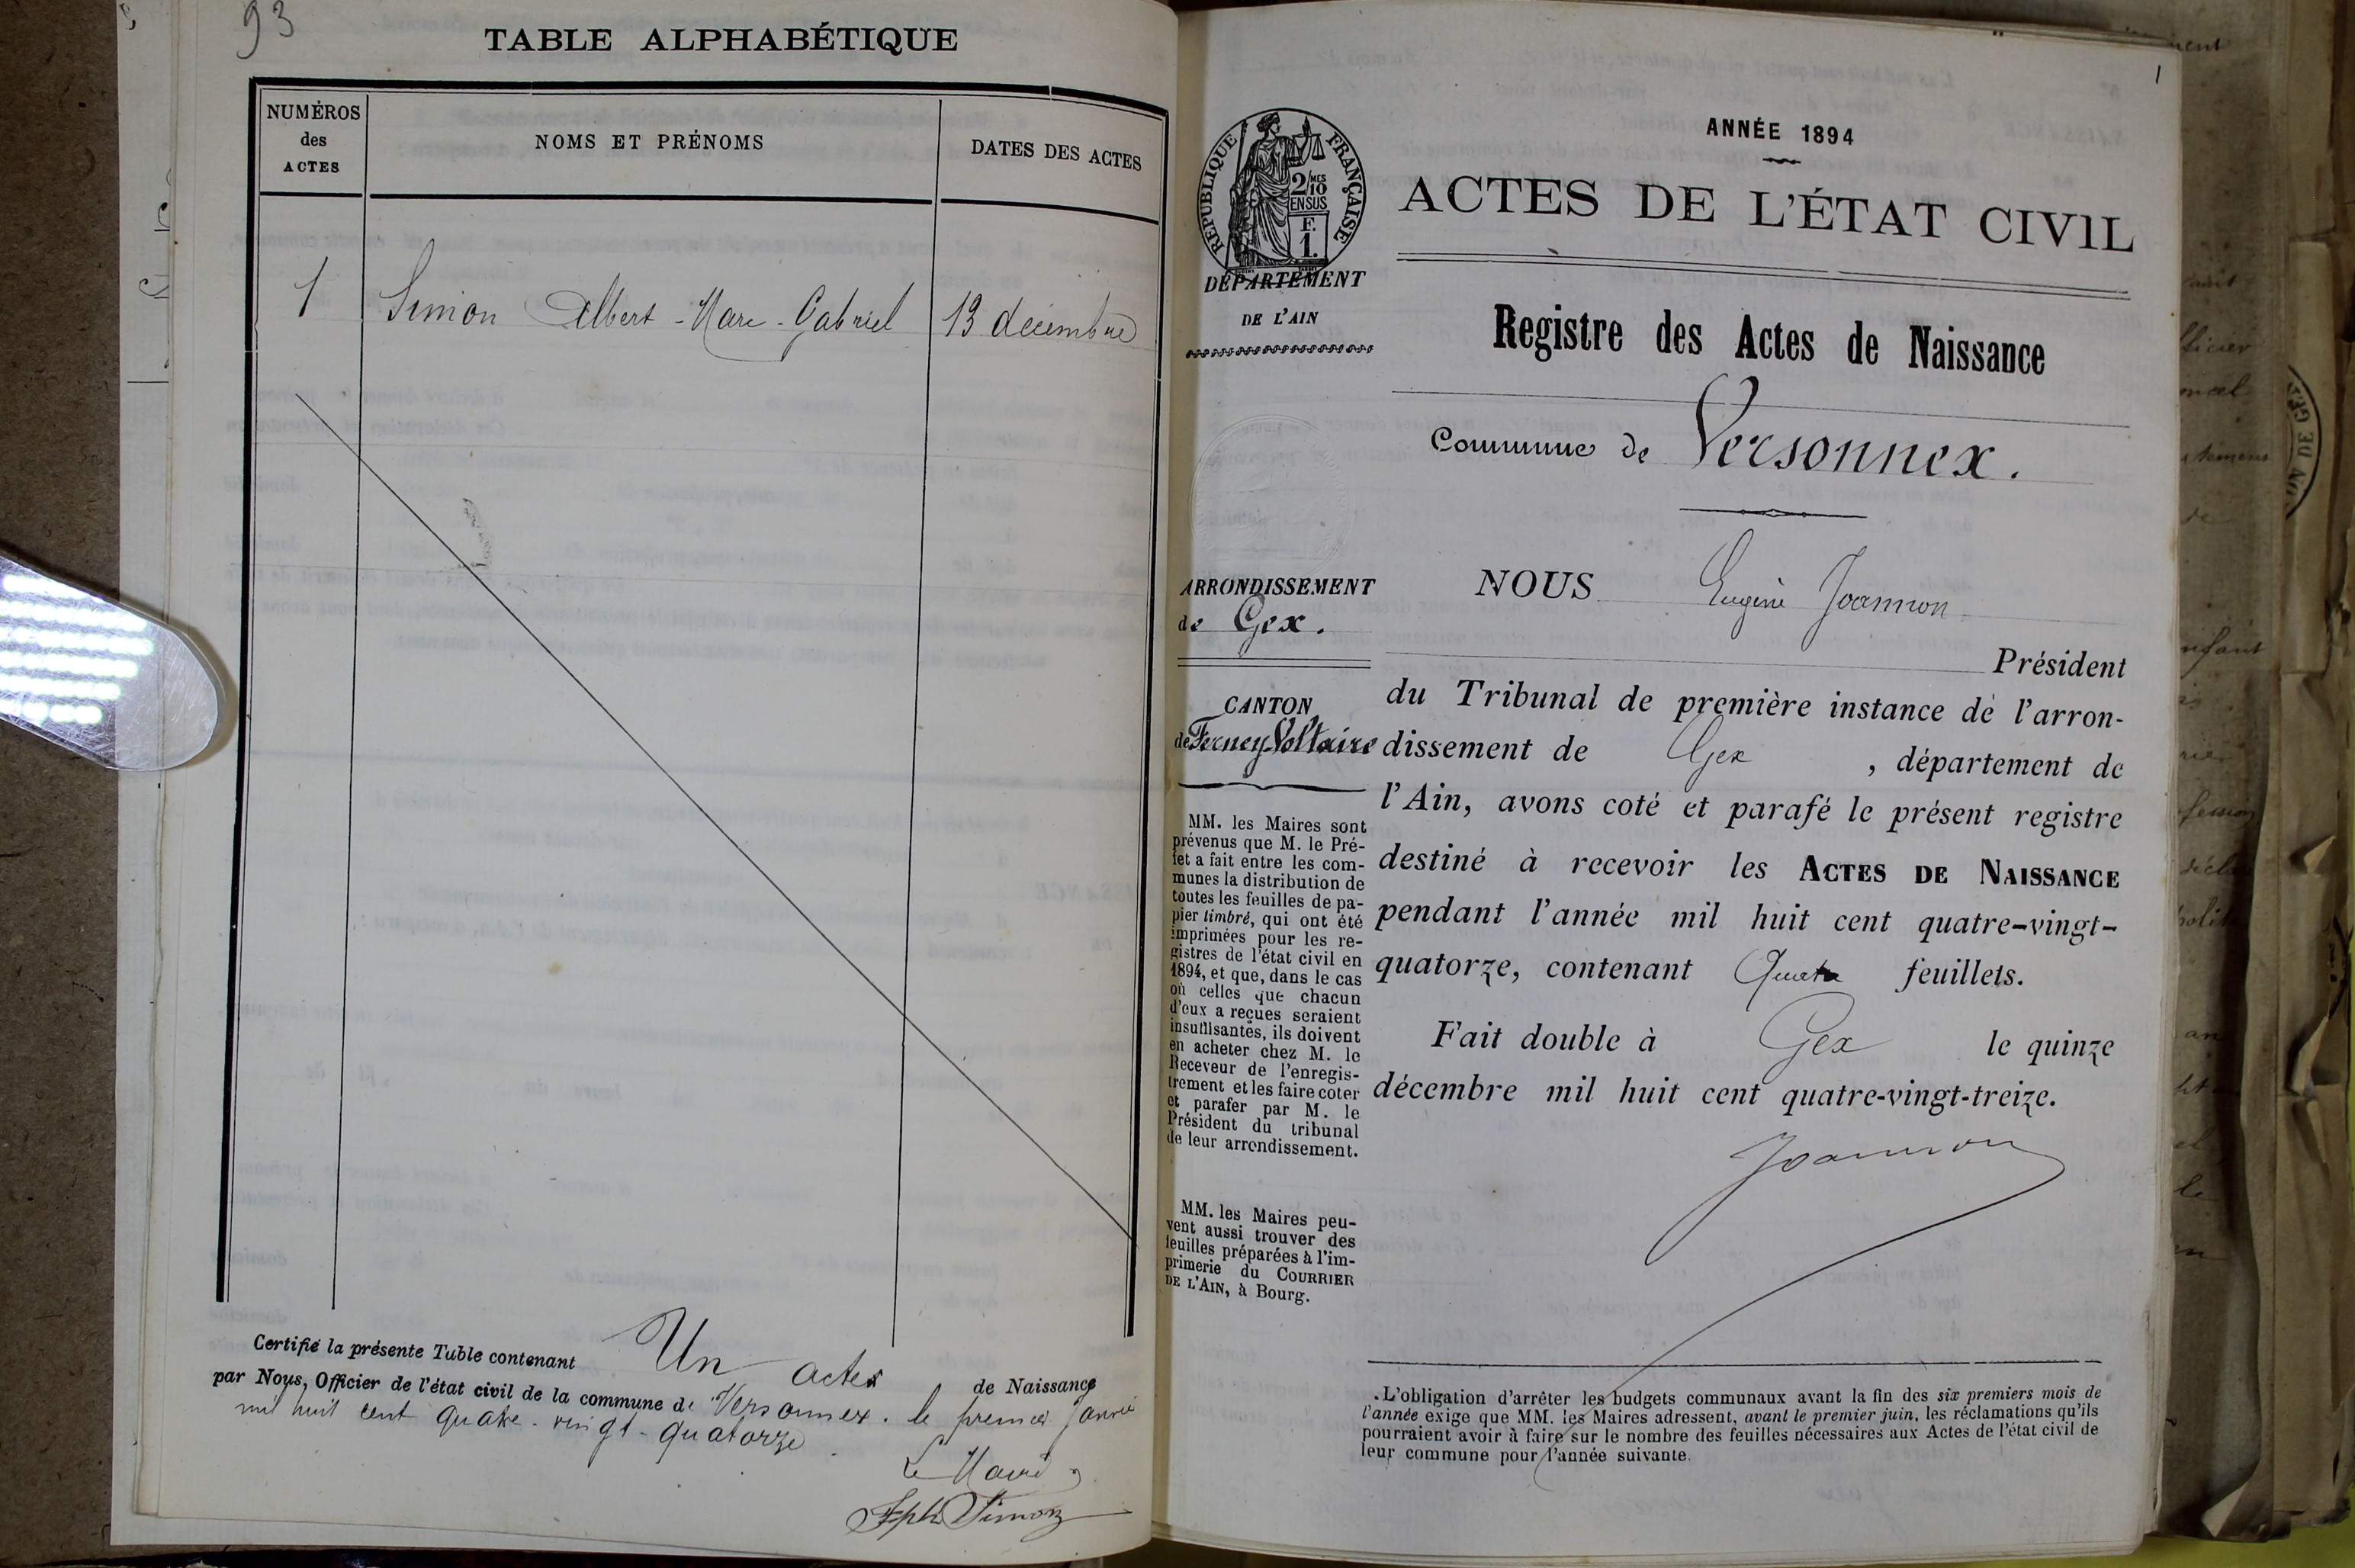 93
TABLE ALPHABÉTIQUE
NUMÉROS
des
ACTES
NOMS ET PRÉNOMS
DATES DES ACTES
1
Simon Albert - Marc - Gabriel
13 décembre
Certifié la présente Table contenant Un actes de Naissance
par Nous, Officier de l'état civil de la commune de Versonnex. le premier Janvier
mil huit cent quatre-vingt-quatorze.
Le Maire
Jph Simon
1
RÉPUBLIQUE FRANÇAISE
2/10
MES
EN SUS
F.
1.
DÉPARTEMENT
DE L'AIN
ANNÉE 1894
ACTES DE L'ÉTAT CIVIL
Registre des Actes de Naissance
Commune de Versonnex.
ARRONDISSEMENT
de Gex.
CANTON
de Ferney-Voltaire
MM. les Maires sont
prévenus que M. le Pré-
fet a fait entre les com-
munes la distribution de
toutes les feuilles de pa-
pier timbré, qui ont été
imprimées pour les re-
gistres de l'état civil en
1894, et que, dans le cas
où celles que chacun
d'eux a reçues seraient
insuffisantes, ils doivent
en acheter chez M. le
Receveur de l'enregis-
trement et les faire coter
et parafer par M. le
Président du tribunal
de leur arrondissement.
MM. les Maires peu-
vent aussi trouver des
feuilles préparées à l'im-
primerie du COURRIER
DE L'AIN, à Bourg.
NOUS Eugène Joannon
Président
du Tribunal de première instance de l'arron-
dissement de Gex , département de
l'Ain, avons coté et parafé le présent registre
destiné à recevoir les ACTES DE NAISSANCE
pendant l'année mil huit cent quatre-vingt-
quatorze, contenant Quatre feuillets.
Fait double à Gex le quinze
décembre mil huit cent quatre-vingt-treize.
Joannon
L'obligation d'arrêter les budgets communaux avant la fin des six premiers mois de
l'année exige que MM. les Maires adressent, avant le premier juin, les réclamations qu'ils
pourraient avoir à faire sur le nombre des feuilles nécessaires aux Actes de l'état civil de
leur commune pour l'année suivante.